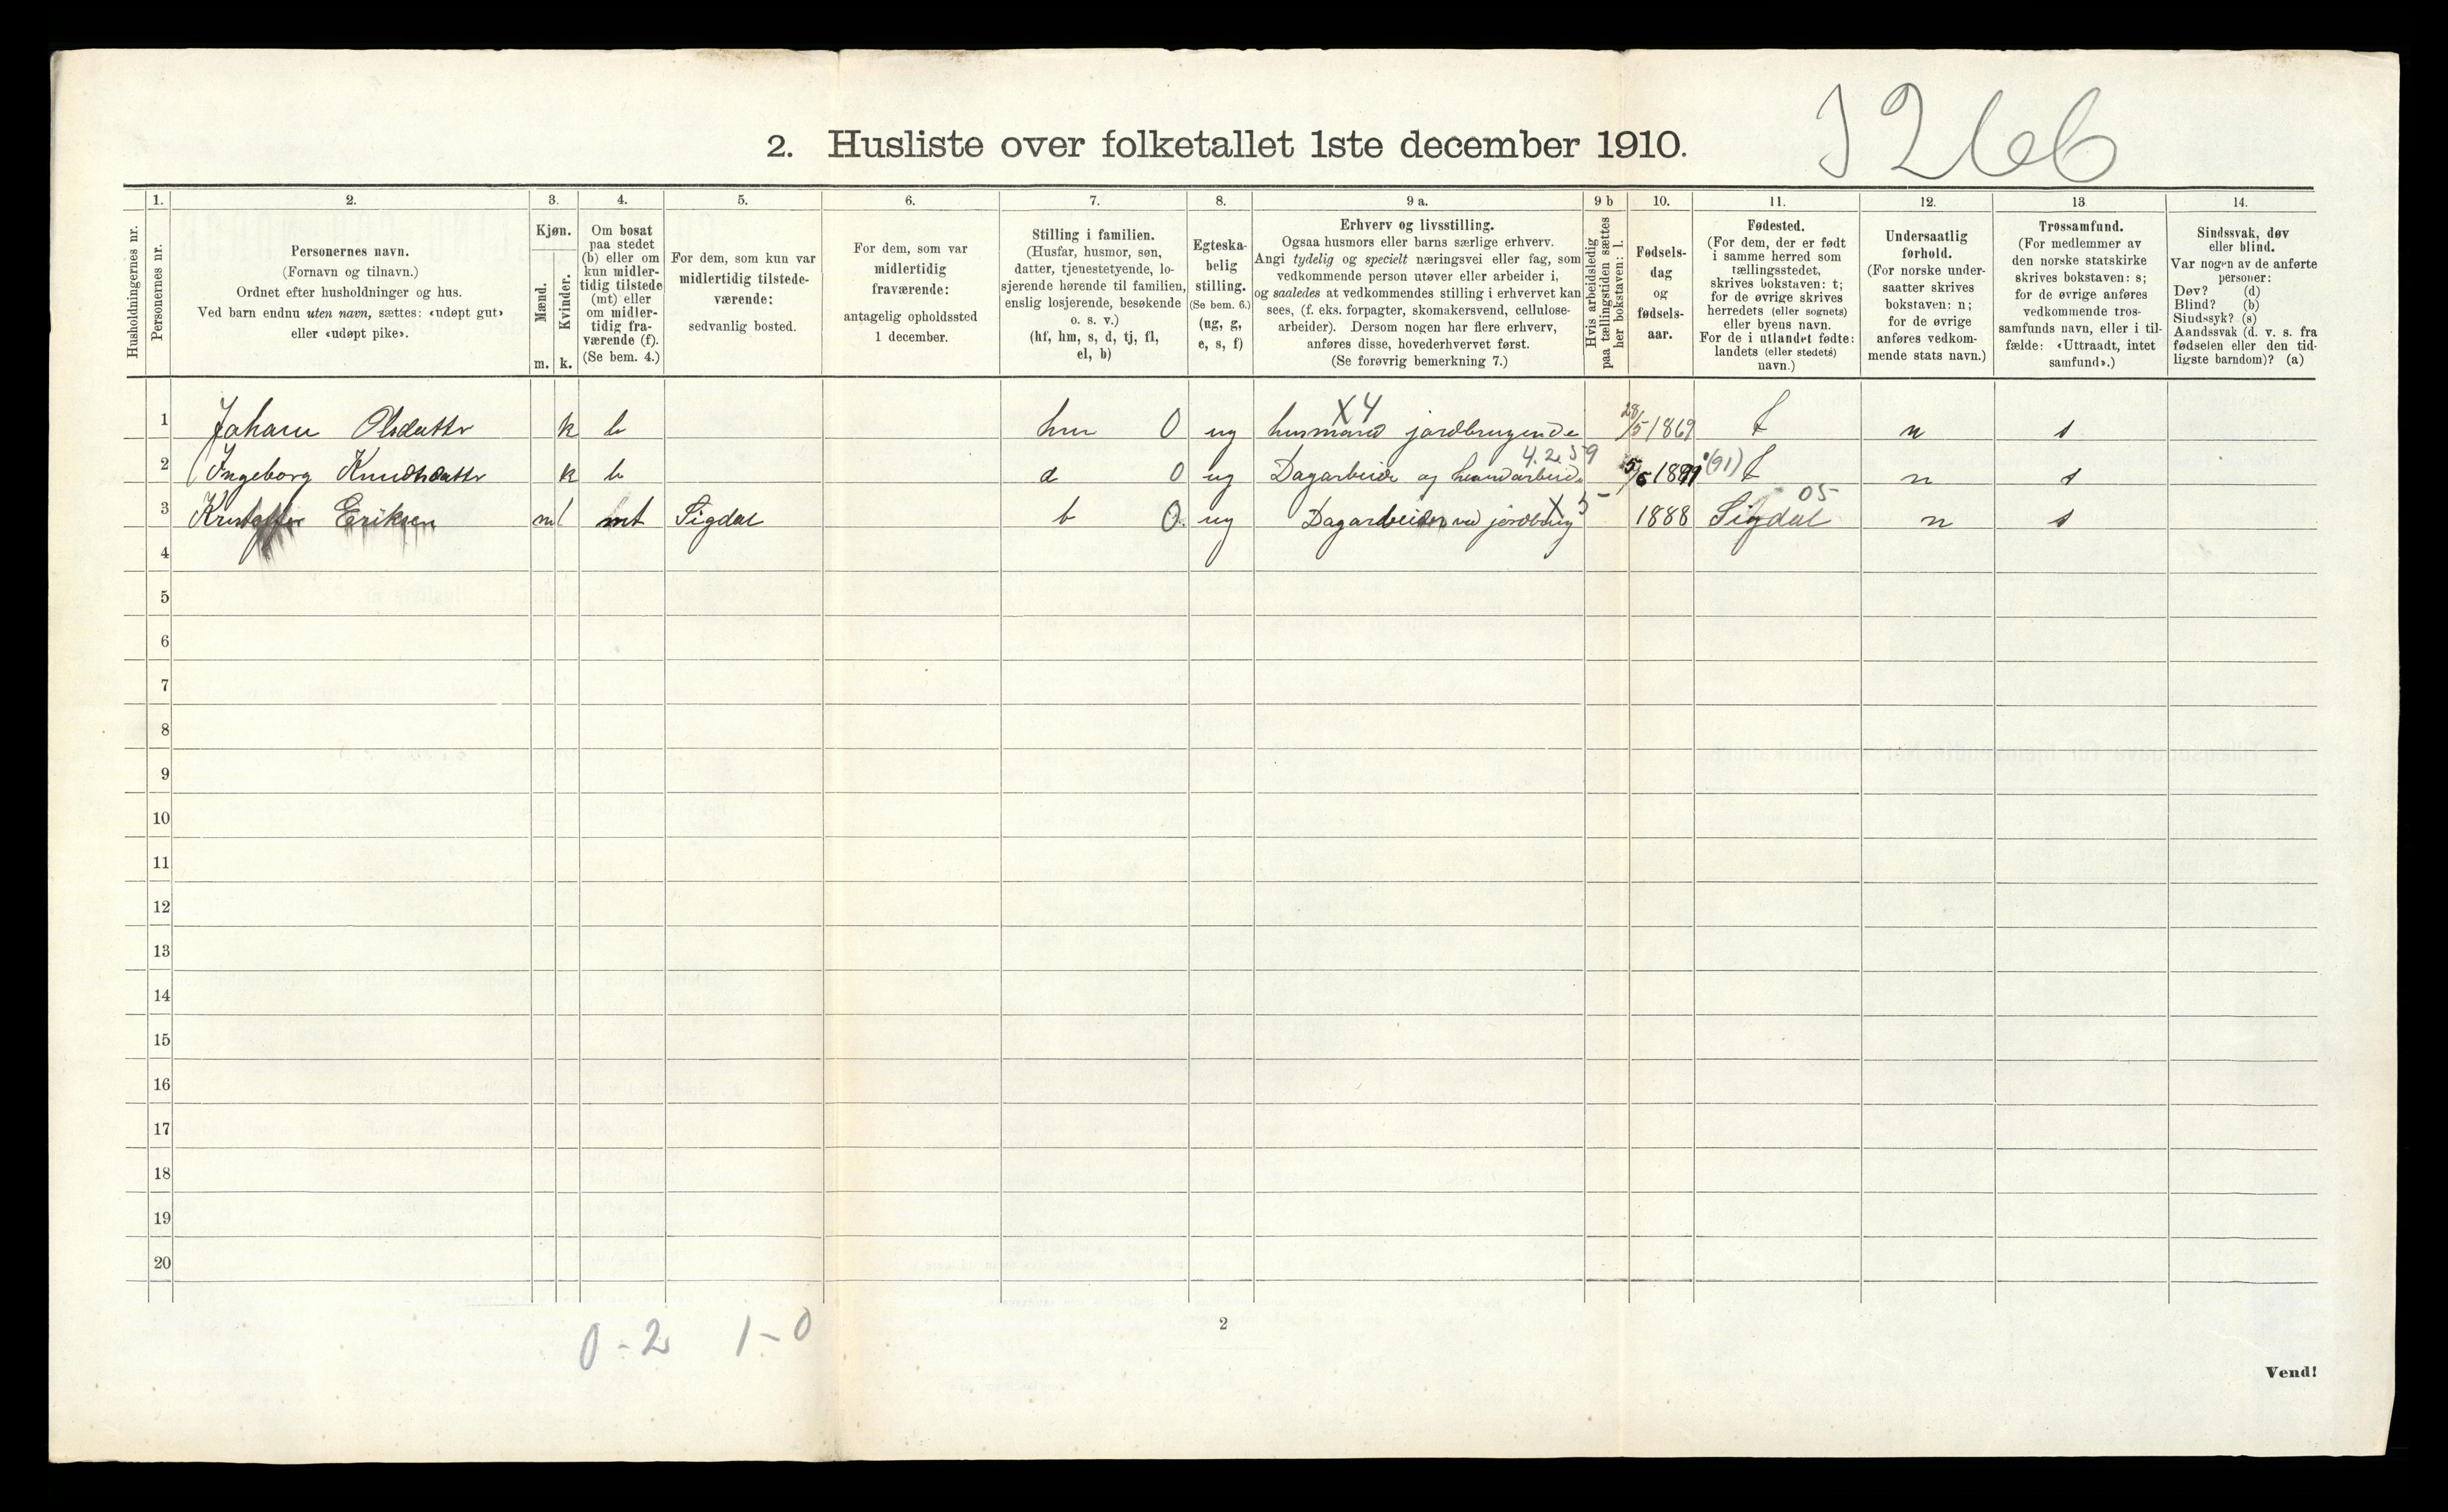 I 2 bb
2. Husliste over folketallet 1ste december 1910.
Husholdningernes nr.
1.
Personernes nr.
2.
Personernes navn.
(Fornavn og tilnavn.)
Ordnet efter husholdninger og hus.
Ved barn endnu uten navn, sættes: «udøpt gut»
eller «udøpt pike».
3.
Kjøn.
Mænd.
Kvinder.
m. k.
4.
Om bosat
paa stedet
(b) eller om
kun midler-
tidig tilstede
(mt) eller
om midler-
tidig fra-
værende (f).
(Se bem. 4.)
5.
For dem, som kun var
midlertidig tilstede-
værende:
sedvanlig bosted.
6.
For dem, som var
midlertidig
fraværende:
antagelig opholdssted
1 december.
7.
Stilling i familien.
(Husfar, husmor, søn,
datter, tjenestetyende, lo-
sjerende hørende til familien,
enslig losjerende, besøkende
o. s. v.)
(hf, hm, s, d, tj, fl,
el, b)
8.
Egteska-
belig
stilling.
(Se bem. 6.)
(ug, g,
e, s, f)
9 a.
Erhverv og livsstilling.
Ogsaa husmors eller barns særlige erhverv.
Angi tydelig og specielt næringsvei eller fag, som
vedkommende person utøver eller arbeider i,
og saaledes at vedkommendes stilling i erhvervet kan
sees, (f. eks. forpagter, skomakersvend, cellulose-
arbeider). Dersom nogen har flere erhverv,
anføres disse, hovederhvervet først.
(Se forøvrig bemerkning 7.)
9 b
Hvis arbeidsledig
paa tællingstiden sættes
her bokstaven: l.
10.
Fødsels-
dag
og
fødsels-
aar.
11.
Fødested.
(For dem, der er født
i samme herred som
tællingsstedet,
skrives bokstaven: t;
for de øvrige skrives
herredets (eller sognets)
eller byens navn.
For de i utlandet fødte:
landets (eller stedets)
navn.)
12.
Undersaatlig
forhold.
(For norske under-
saatter skrives
bokstaven: n;
for de øvrige
anføres vedkom-
mende stats navn.)
13
Trossamfund.
(For medlemmer av
den norske statskirke
skrives bokstaven: s;
for de øvrige anføres
vedkommende tros-
samfunds navn, eller i til-
fælde: «Uttraadt, intet
samfund».)
14.
Sindssvak, døv
eller blind.
Var nogen av de anførte
personer:
Døv? (d)
Blind? (b)
Sindssyk? (s)
Aandssvak (d. v. s. fra
fødselen eller den tid-
ligste barndom)? (a)
X4
1 Johane Olsdatter k b hm 0 ug husmand jordbrugende 28/5 1869 t n s
4.2.59
2 Ingeborg Knudtsdatter k b d 0 ug Dagarbeide og haandarbeide 5/6 1891 (91) t n s
X 5- 05
3 Kristoffer Eriksen m mt Sigdal b 0. ug Dagarbeider ved jordbrug 1888 Sigdal n s
4
5
6
7
8
9
10
11
12
13
14
15
16
17
18
19
20
0-2 1-0
2
Vend!